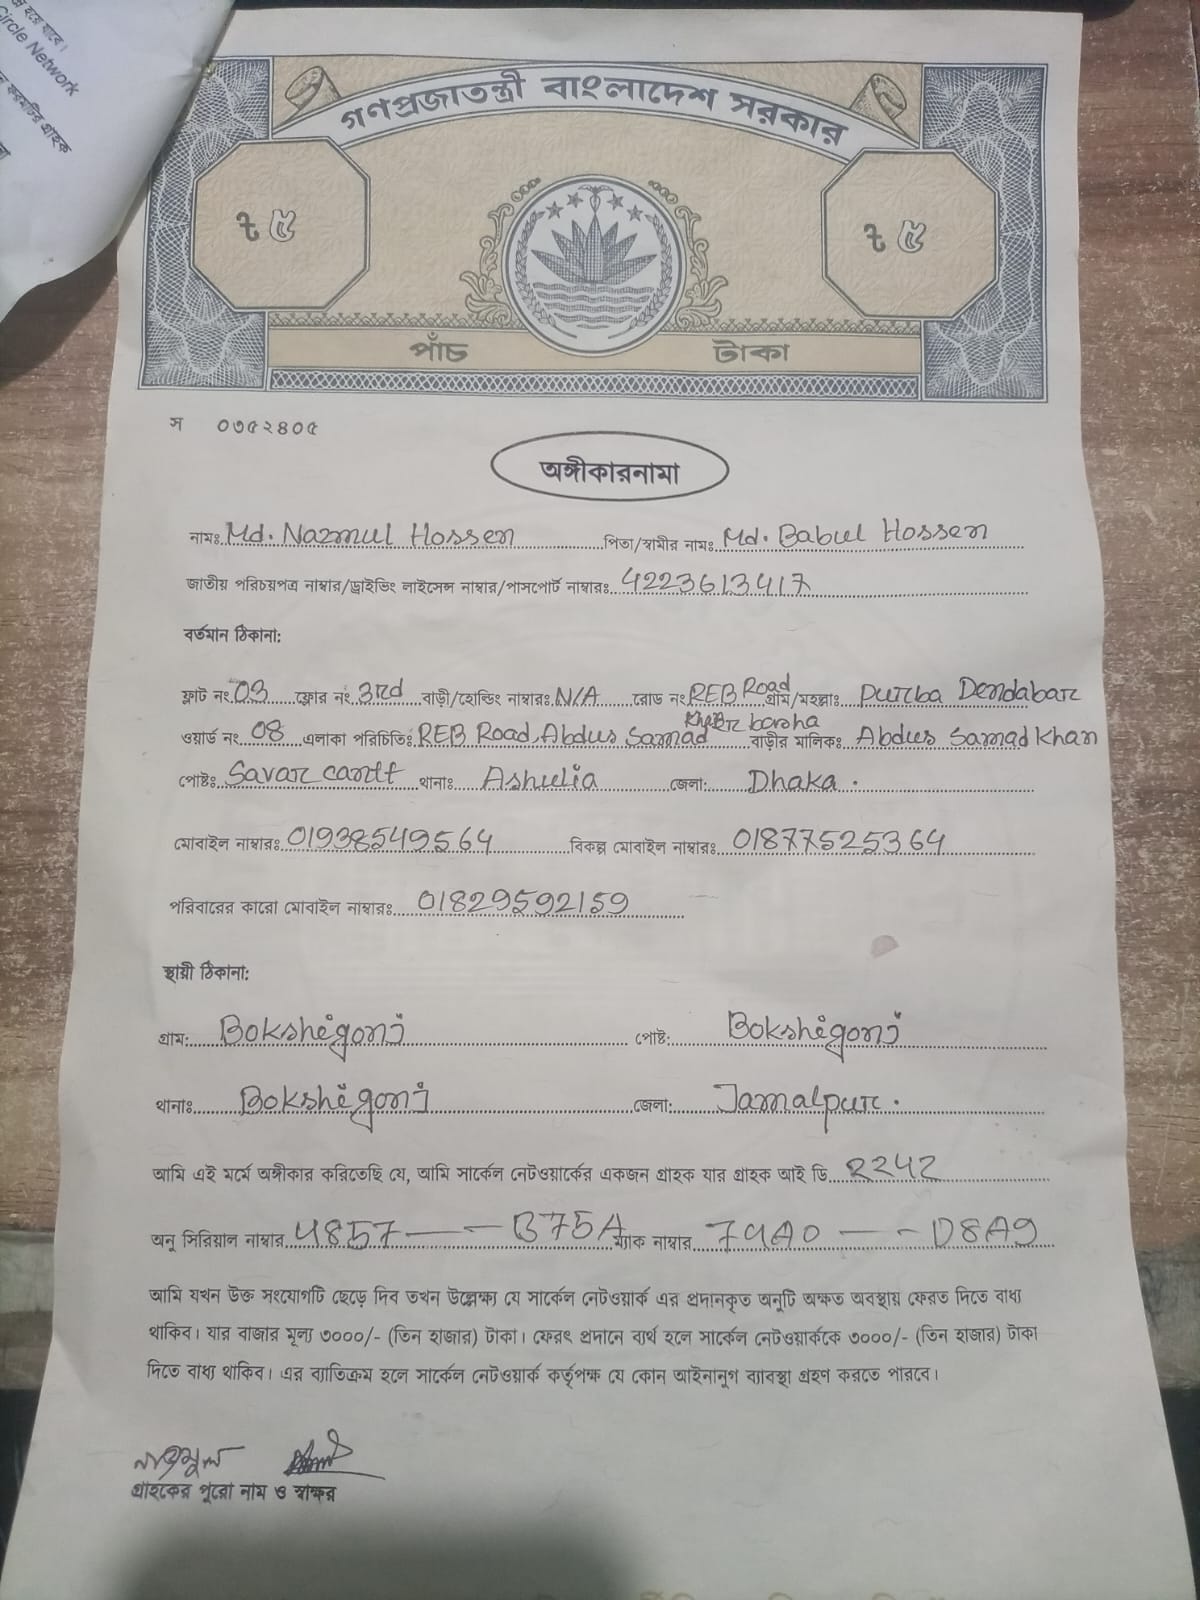 হয়ে যাবে।
Circle Network
গণপ্রজাতন্ত্রী বাংলাদেশ সরকার
৳ ৫ ৳ ৫
পাঁচ টাকা
স ০৩৫২৪০৫
অঙ্গীকারনামা
নামঃ Md. Nazmul Hossen পিতা/স্বামীর নামঃ Md. Babul Hossen
জাতীয় পরিচয়পত্র নাম্বার/ড্রাইভিং লাইসেন্স নাম্বার/পাসপোর্ট নাম্বারঃ 4223613417
বর্তমান ঠিকানা:
ফ্লাট নং 03 ফ্লোর নং 3rd বাড়ী/হোল্ডিং নাম্বারঃ N/A রোড নং REB Road গ্রাম/মহল্লাঃ Purba Dendabar
ওয়ার্ড নং 08 এলাকা পরিচিতিঃ REB Road, Abdus Samad barsha বাড়ীর মালিকঃ Abdus Samad Khan
পোষ্টঃ Savar cantt থানাঃ Ashulia জেলা: Dhaka.
মোবাইল নাম্বারঃ 01938549564 বিকল্প মোবাইল নাম্বারঃ 01877525364
পরিবারের কারো মোবাইল নাম্বারঃ 01829592159
স্থায়ী ঠিকানা:
গ্রাম: Bokshigonj পোষ্ট: Bokshigonj
থানাঃ Bokshigonj জেলা: Jamalpur.
আমি এই মর্মে অঙ্গীকার করিতেছি যে, আমি সার্কেল নেটওয়ার্কের একজন গ্রাহক যার গ্রাহক আই ডি 2242
অনু সিরিয়াল নাম্বার 4857 — — B75A ম্যাক নাম্বার 79A0 — - D8A9
আমি যখন উক্ত সংযোগটি ছেড়ে দিব তখন উল্লেক্ষ্য যে সার্কেল নেটওয়ার্ক এর প্রদানকৃত অনুটি অক্ষত অবস্থায় ফেরত দিতে বাধ্য
থাকিব। যার বাজার মূল্য ৩০০০/- (তিন হাজার) টাকা। ফেরৎ প্রদানে ব্যর্থ হলে সার্কেল নেটওয়ার্ককে ৩০০০/- (তিন হাজার) টাকা
দিতে বাধ্য থাকিব। এর ব্যাতিক্রম হলে সার্কেল নেটওয়ার্ক কর্তৃপক্ষ যে কোন আইনানুগ ব্যাবস্থা গ্রহণ করতে পারবে।
নাজমুল
গ্রাহকের পুরো নাম ও স্বাক্ষর